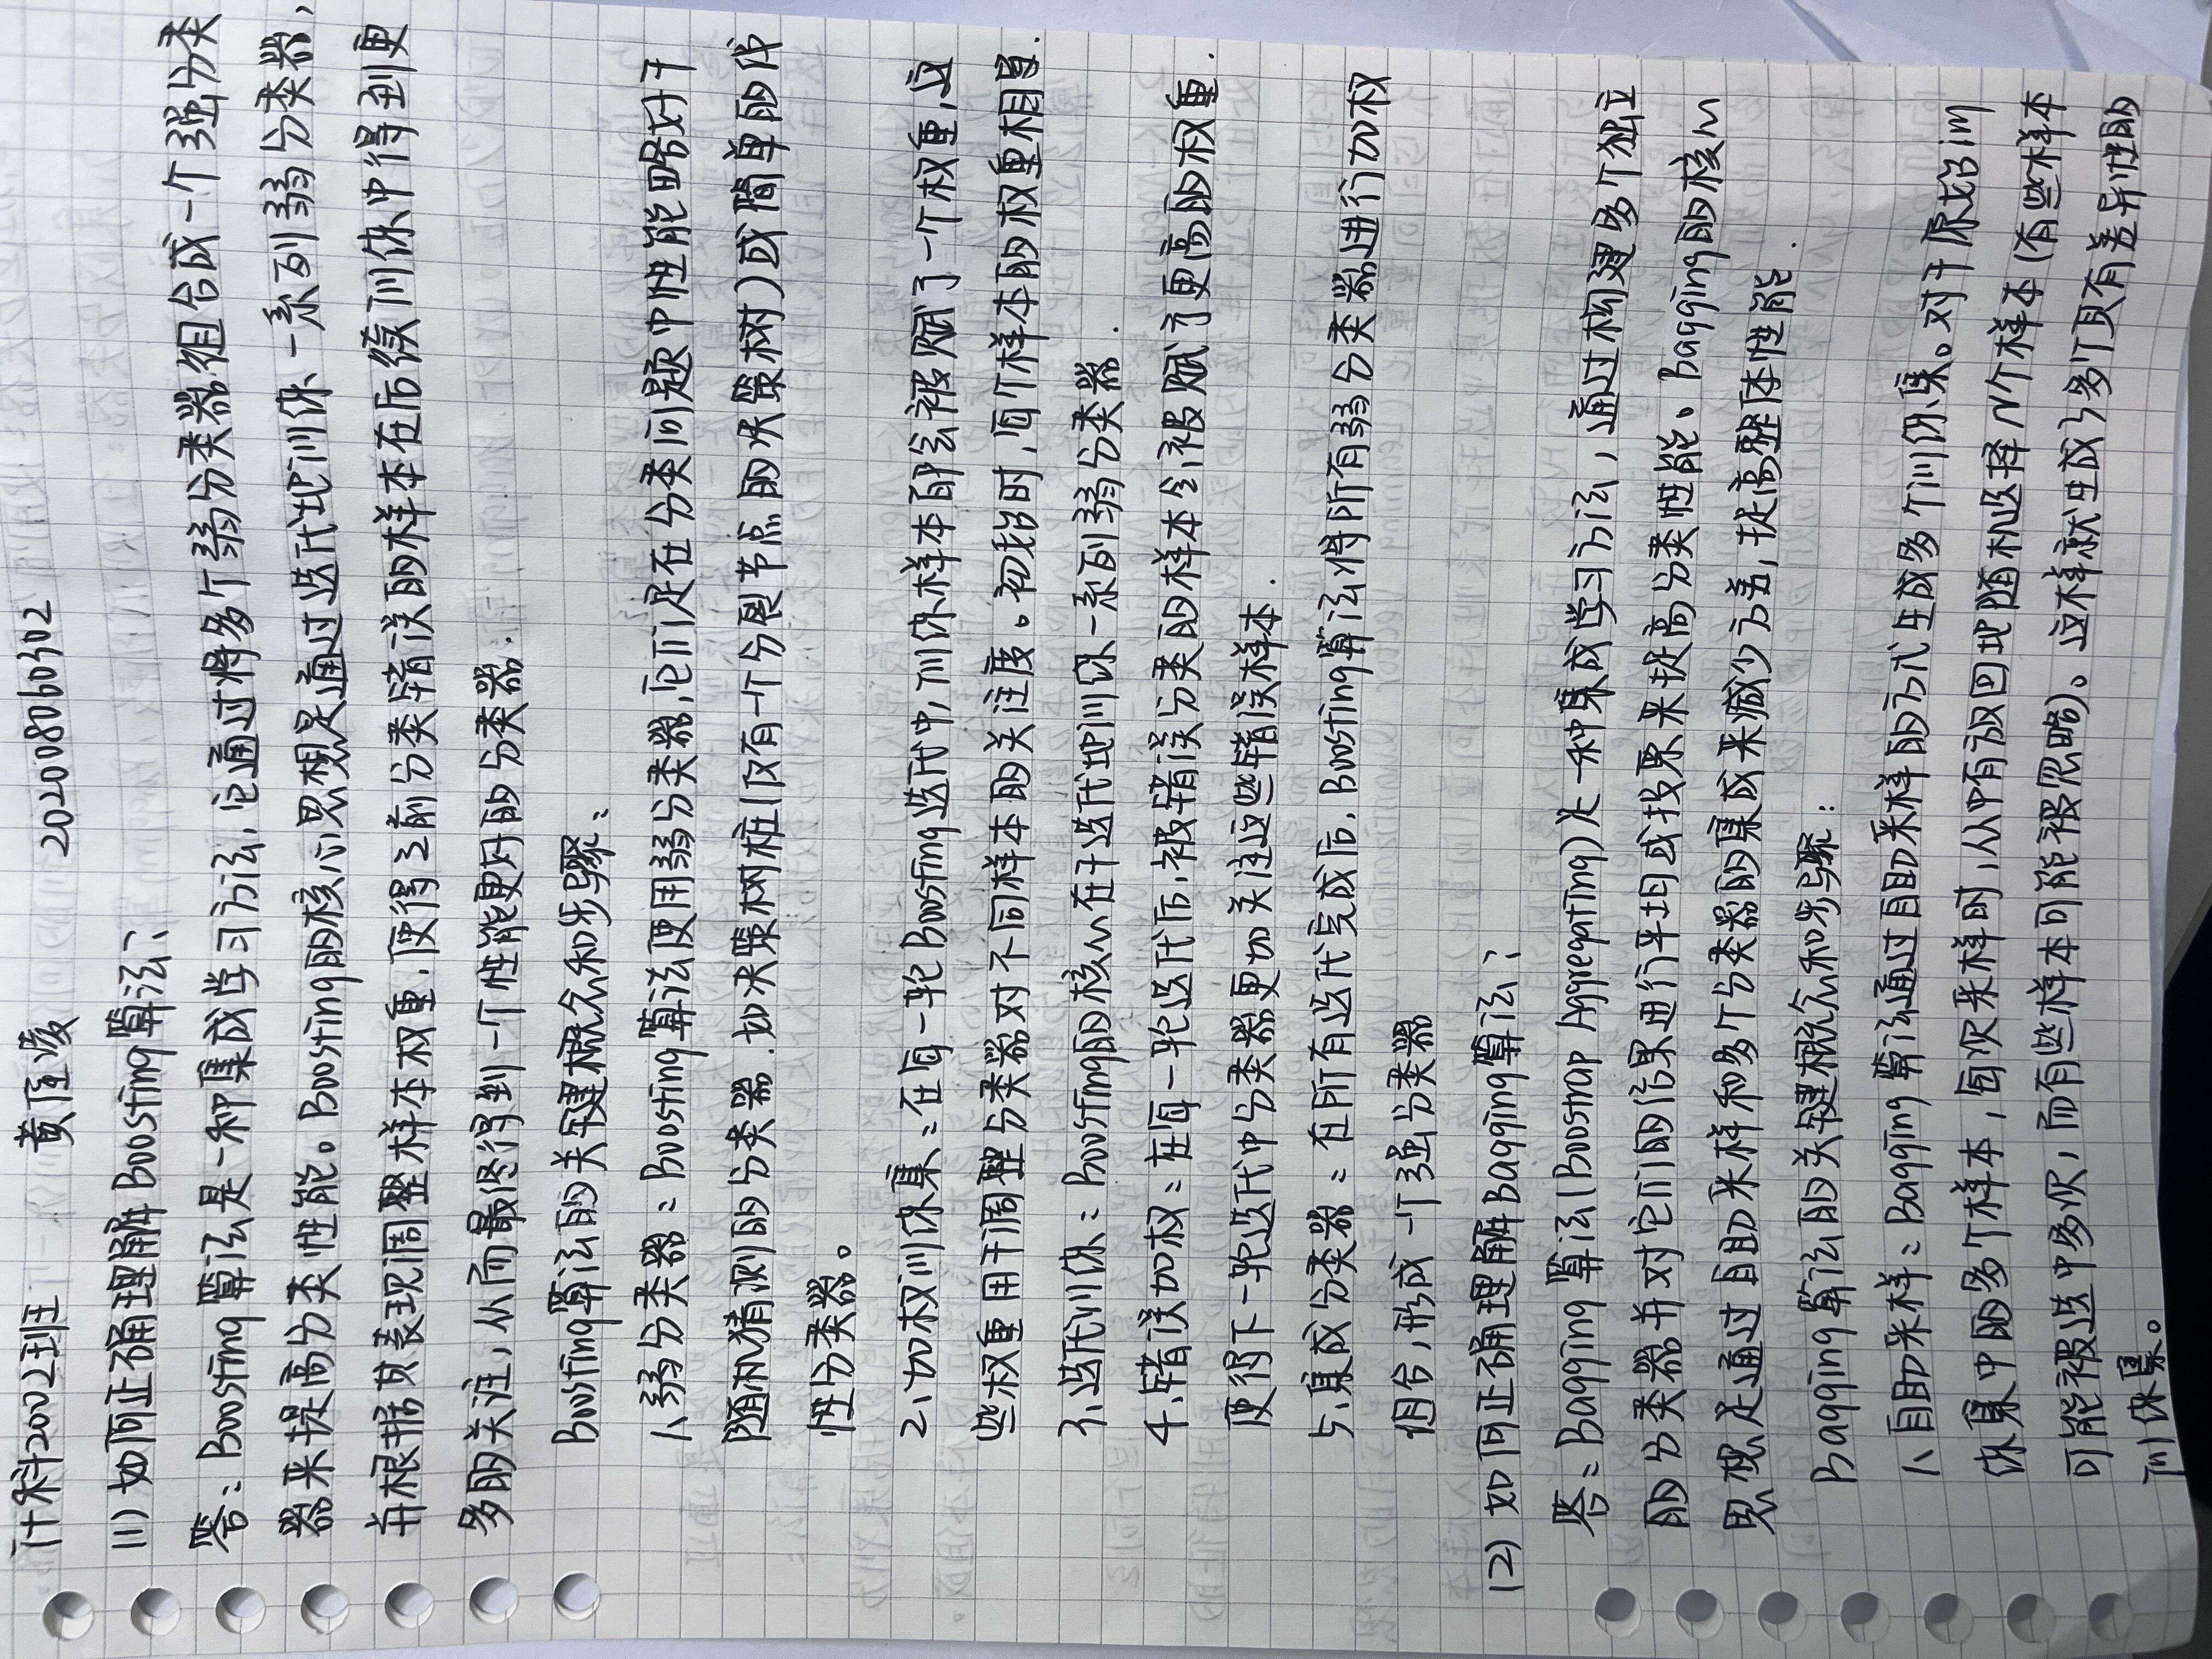 计科2002班 黄 凌 202008060302
(1) 如何正确理解Boosting算法?
答: Boosting算法是一种集成学习方法,它通过将多个弱分类器组合成一个强分类
器来提高分类性能。Boosting的核心思想是通过迭代地训练一系列弱分类器,
并根据其表现调整样本权重,使得之前分类错误的样本在后续训练中得到更
多的关注,从而最终得到一个性能更好的分类器.
Boosting算法的关键概念和步骤:
1、弱分类器: Boosting算法使用弱分类器,它们是在分类问题中性能略好于
随机猜测的分类器.如决策树桩(仅有一个分裂节点的决策树)或简单的线
性分类器。
2、加权训练集:在每一轮Boosting迭代中,训练样本都会被赋予一个权重,这
些权重用于调整分类器对不同样本的关注度。初始时,每个样本的权重相等.
3、迭代训练: Boosting的核心在于迭代地训练一系列弱分类器.
4、错误加权:在每一轮迭代后,被错误分类的样本会被赋予更高的权重.
使得下一轮迭代中分类器更加关注这些错误样本.
5、集成分类器:在所有迭代完成后,Boosting算法将所有弱分类器进行加权
组合,形成一个强分类器
(2) 如何正确理解Bagging算法?
答: Bagging算法(Boostrap Aggregating)是一种集成学习方法,通过构建多个独立
的分类器并对它们的结果进行平均或投票来提高分类性能。Bagging的核心
思想是通过自助采样和多个分类器的集成来减少方差,提高整体性能.
Bagging算法的关键概念和步骤:
1、自助采样: Bagging算法通过自助采样的方式生成多个训练集。对于原始训
练集中的多个样本,每次采样时,从中有放回地随机选择N个样本(有些样本
可能被选中多次,而有些样本可能被忽略)。这样就生成了多个具有差异性的
训练集。